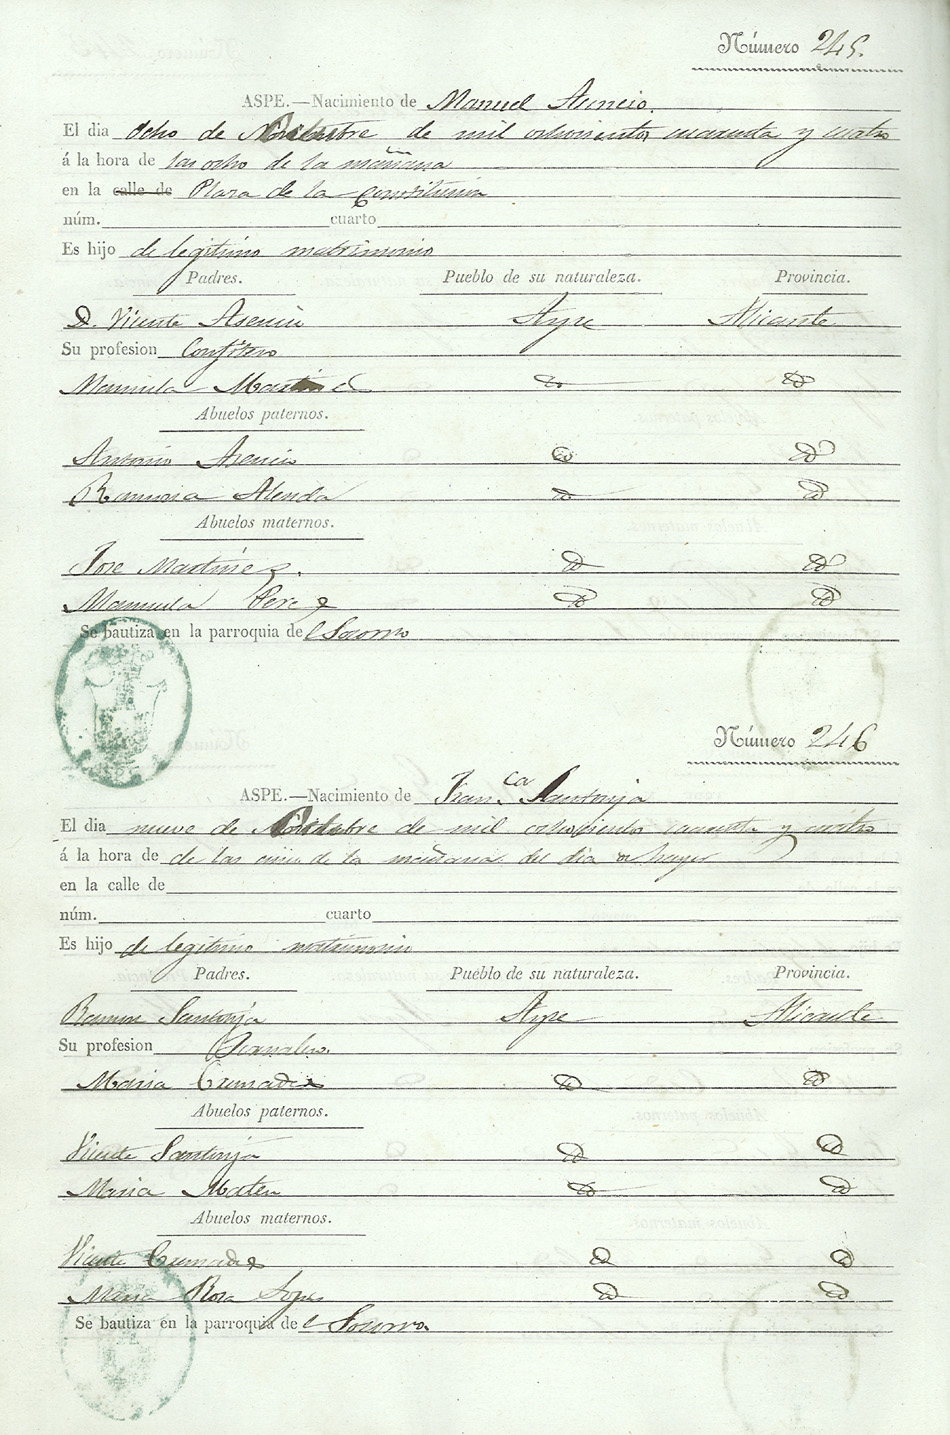 Número 245.
ASPE.—Nacimiento de Manuel Asencio.
El dia ocho de de mil ochocientos cuarenta y cuatro
á la hora de las ocho de la mañana
en la calle de Plaza de la Constitucion
núm. cuarto
Es hijo de legitimo matrimonio
Padres. Pueblo de su naturaleza. Provincia.
D. Vicente Asencio Aspe Alicante
Su profesion Confitero
Manuela Id Id
Abuelos paternos.
Antonio Asencio Id Id
Ramona Alenda Id Id
Abuelos maternos.
Jose Martinez. Id Id
Manuela Perez Id Id
Se bautiza en la parroquia del Socorro
Número 246
ASPE.—Nacimiento de Fran.ca Santonja
El dia nueve de de mil ochocientos cuarenta y cuatro
á la hora de de las cinco de la mañana del dia
en la calle de
núm. cuarto
Es hijo de legitimo matrimonio
Padres. Pueblo de su naturaleza. Provincia.
Ramon Santonja Aspe Alicante
Su profesion Jornalero.
Maria Cremades Id Id
Abuelos paternos.
Vicente Santonja Id Id
Maria Mateu Id Id
Abuelos maternos.
Vicente Cremades Id Id
Maria Rosa Lopes Id Id
Se bautiza en la parroquia del Socorro